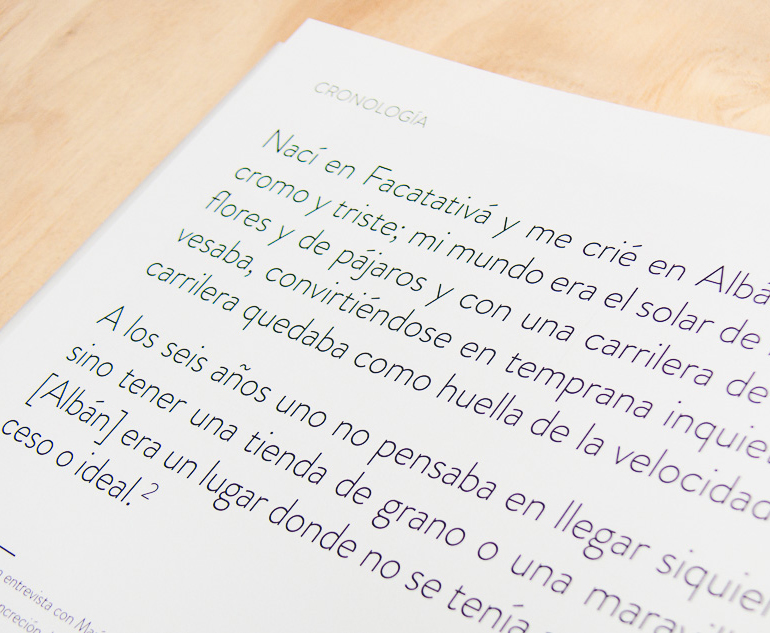 CRONOLOGÍA
Nací en Facatativá y me crié en Albá
cromo y triste; mi mundo era el solar de
flores y de pájaros y con una carrilera de
vesaba, convirtiéndose en temprana inquie
carrilera quedaba como huella de la velocidad
A los seis años uno no pensaba en llegar siquier
sino tener una tienda de grano o una maravil
[Albán] era un lugar donde no se tenía
ceso o ideal.2
entrevista con